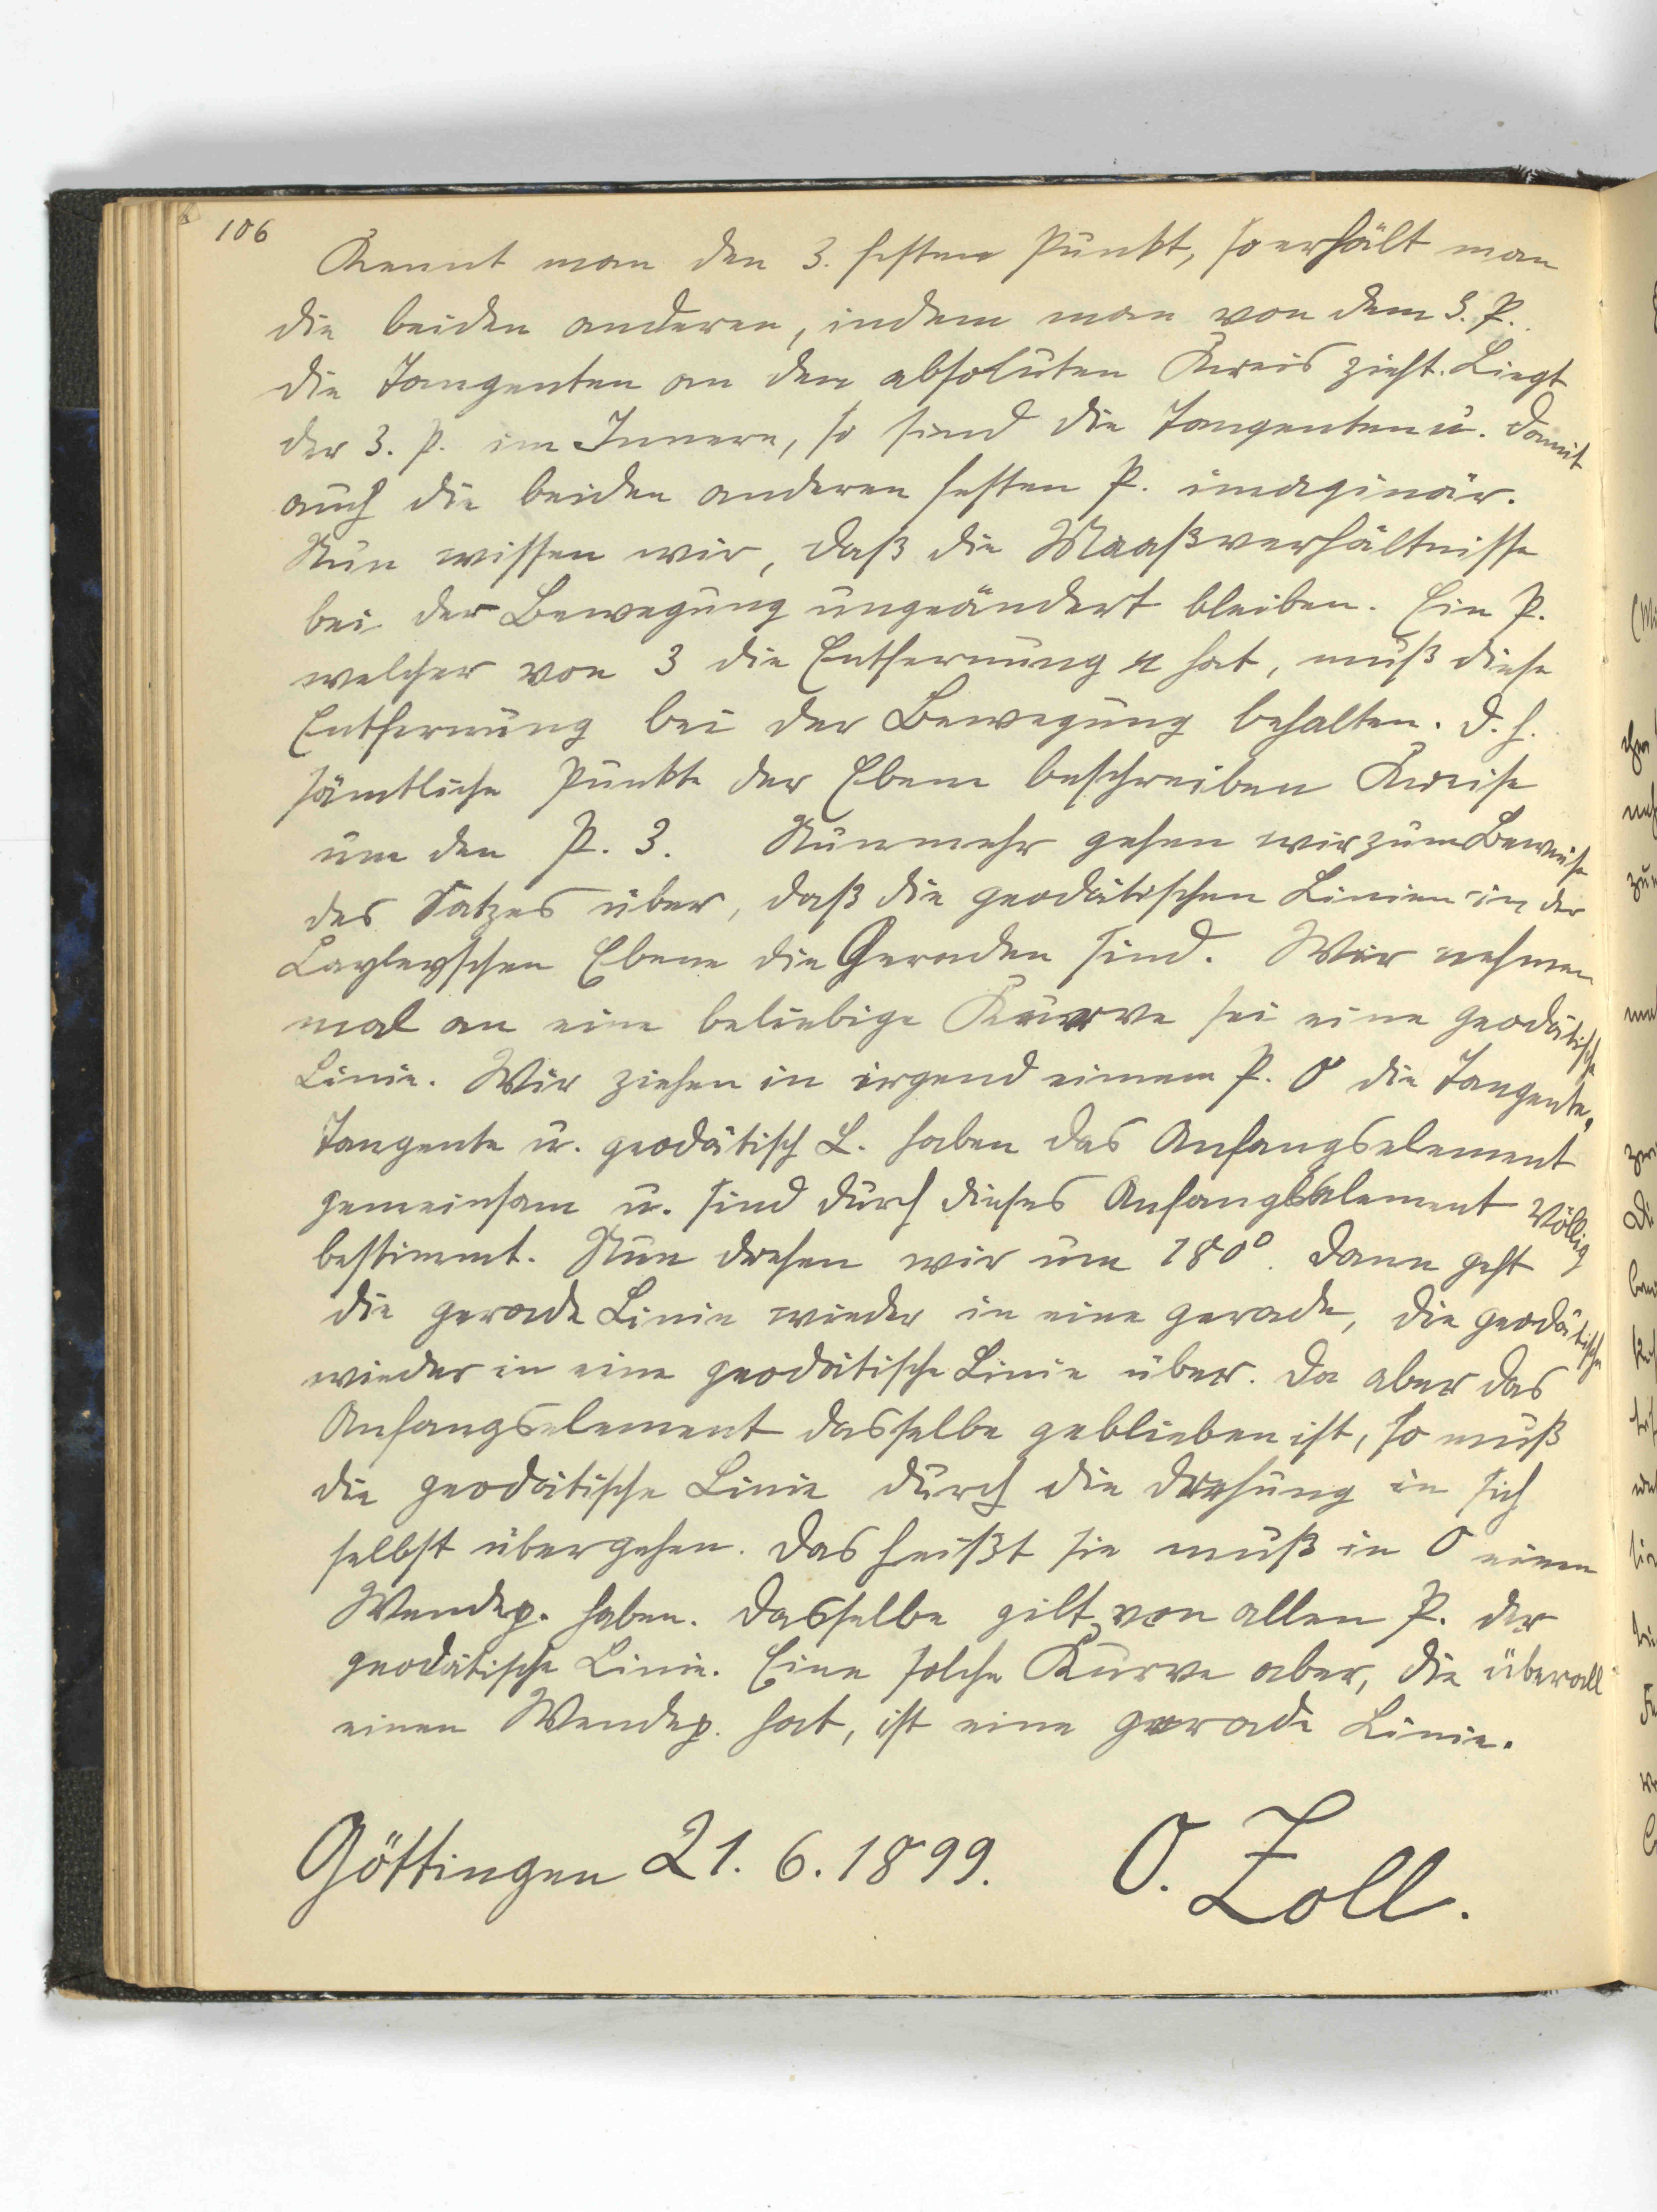 106
Kennt man den 3. festen Punkt, so erhält man
die beiden anderen, indem man von dem 3. P.
die Tangenten an den absoluten Kreis zieht. Liegt
der 3. P. im Innern, so sind die Tangenten u. damit
auch die beiden anderen festen P. imaginär.
Nun wissen wir, daß die Maaßverhältnisse
bei der Bewegung ungeändert bleiben. Ein P.
welcher von 3 die Entfernung r hat, muß diese
Entfernung bei der Bewegung behalten. D. h.
sämtliche Punkte der Ebene beschreiben Kreise
um den P. 3. Nunmehr gehen wir zum Beweise
des Satzes über, daß die geodätischen Linien in der
Cayleyschen Ebene die Geraden sind. Wir nehmen
mal an eine beliebige Kurve sei eine geodätische
Linie. Wir ziehen in irgend einem P. O die Tangente,
Tangente u. geodätisch L. haben das Anfangselement
gemeinsam u. sind durch dieses Anfangselement völlig
bestimmt. Nun drehen wir um 180°. Dann geht
die gerade Linie wieder in eine gerade, die geodätische
wieder in eine geodätische Linie über. Da aber das
Anfangselement dasselbe geblieben ist, so muß
die geodätische Linie durch die Drehung in sich
selbst übergehen. Das heißt sie muß in O einen
Wendep. haben. Dasselbe gilt von allen P. der
geodätische Linie. Eine solche Kurve aber, die überall
einen Wendep. hat, ist eine gerade Linie.
Göttingen 21. 6. 1899. O. Zoll.